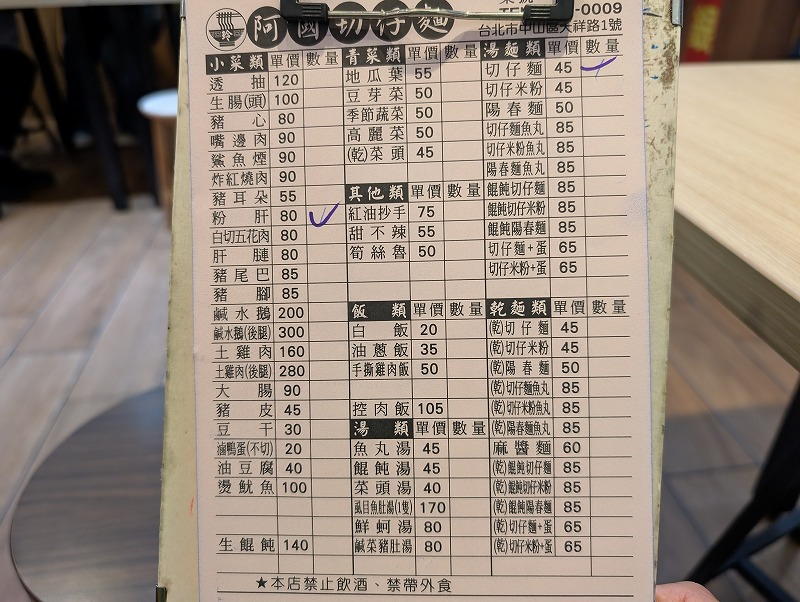 阿國切仔麵
-0009
台北市中山區天祥路1號
小菜類 單價 數量
透抽 120
生腸(頭) 100
豬心 80
嘴邊肉 90
鯊魚煙 90
炸紅燒肉 90
豬耳朵 55
粉肝 80
白切五花肉 80
肝腱 80
豬尾巴 85
豬腳 85
鹹水鵝 200
鹹水鵝(後腿) 300
土雞肉 160
土雞肉(後腿) 280
大腸 90
豬皮 45
豆干 30
滷鴨蛋(不切) 20
油豆腐 40
燙魷魚 100
生餛飩 140
青菜類 單價 數量
地瓜葉 55
豆芽菜 50
季節蔬菜 50
高麗菜 50
(乾)菜頭 45
其他類 單價 數量
紅油抄手 75
甜不辣 55
筍絲魯 50
飯類 單價 數量
白飯 20
油蔥飯 35
手撕雞肉飯 50
控肉飯 105
湯類 單價 數量
魚丸湯 45
餛飩湯 45
菜頭湯 40
虱目魚肚湯(1隻) 170
鮮蚵湯 80
鹹菜豬肚湯 80
湯麵類 單價 數量
切仔麵 45
切仔米粉 45
陽春麵 50
切仔麵魚丸 85
切仔米粉魚丸 85
陽春麵魚丸 85
餛飩切仔麵 85
餛飩切仔米粉 85
餛飩陽春麵 85
切仔麵+蛋 65
切仔米粉+蛋 65
乾麵類 單價 數量
(乾)切仔麵 45
(乾)切仔米粉 45
(乾)陽春麵 50
(乾)切仔麵魚丸 85
(乾)切仔米粉魚丸 85
(乾)陽春麵魚丸 85
麻醬麵 60
(乾)餛飩切仔麵 85
(乾)餛飩切仔米粉 85
(乾)餛飩陽春麵 85
(乾)切仔麵+蛋 65
(乾)切仔米粉+蛋 65
★本店禁止飲酒、禁帶外食